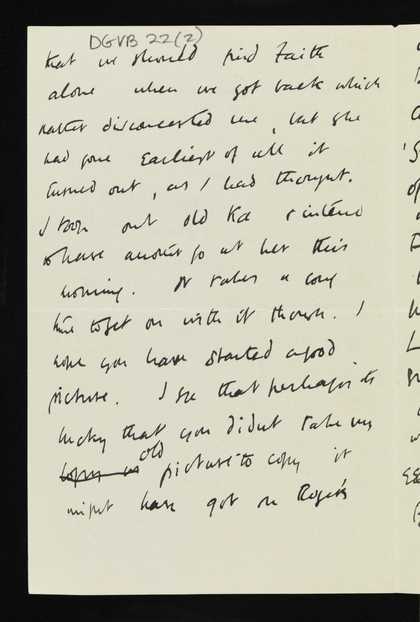 DGVB 22(2)
that we should find Faith
alone when we got back which
rather disconcerted me, but she
had gone Earliest of all it
turned out, as I had thought.
I took out old Ka & intend
to have another go at her this
morning. It takes a long
time to get on with it though. I
hope you have started a good
picture. I see that perhaps its
lucky that you didnt take my
old picture to copy it
might have got on Roger's